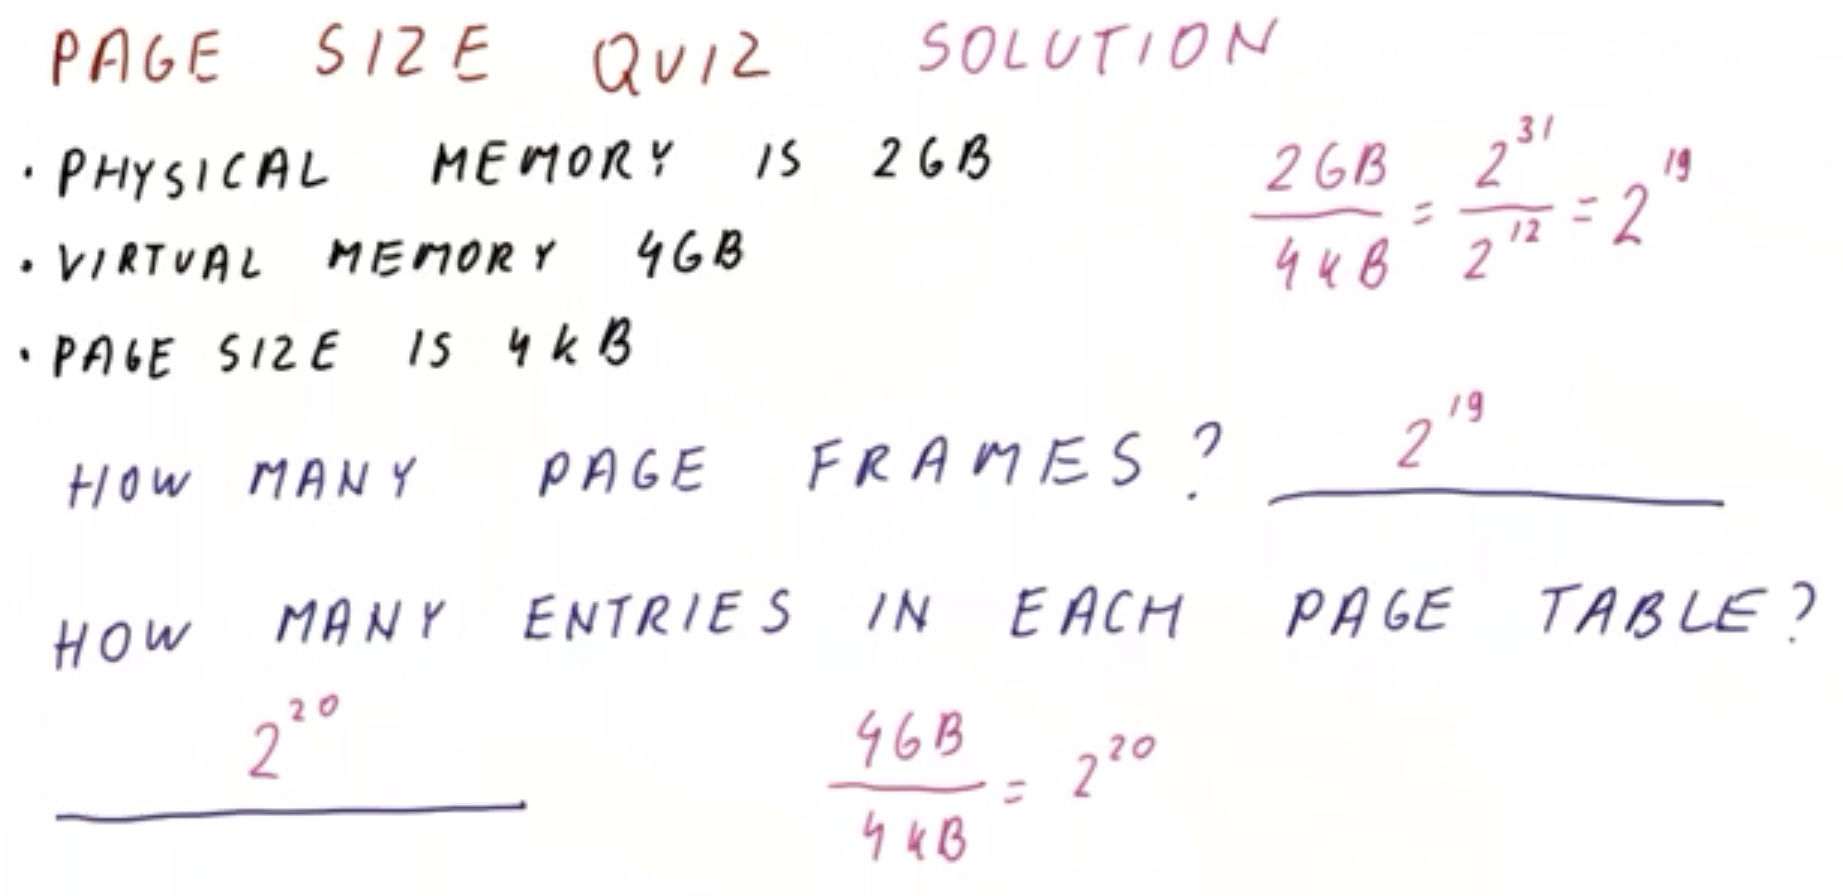 PAGE SIZE QUIZ SOLUTION
· PHYSICAL MEMORY IS 2GB
· VIRTUAL MEMORY 4GB
· PAGE SIZE IS 4kB
2GB/4kB = 2^31/2^12 = 2^19
HOW MANY PAGE FRAMES? 2^19
HOW MANY ENTRIES IN EACH PAGE TABLE?
2^20
4GB/4kB = 2^20